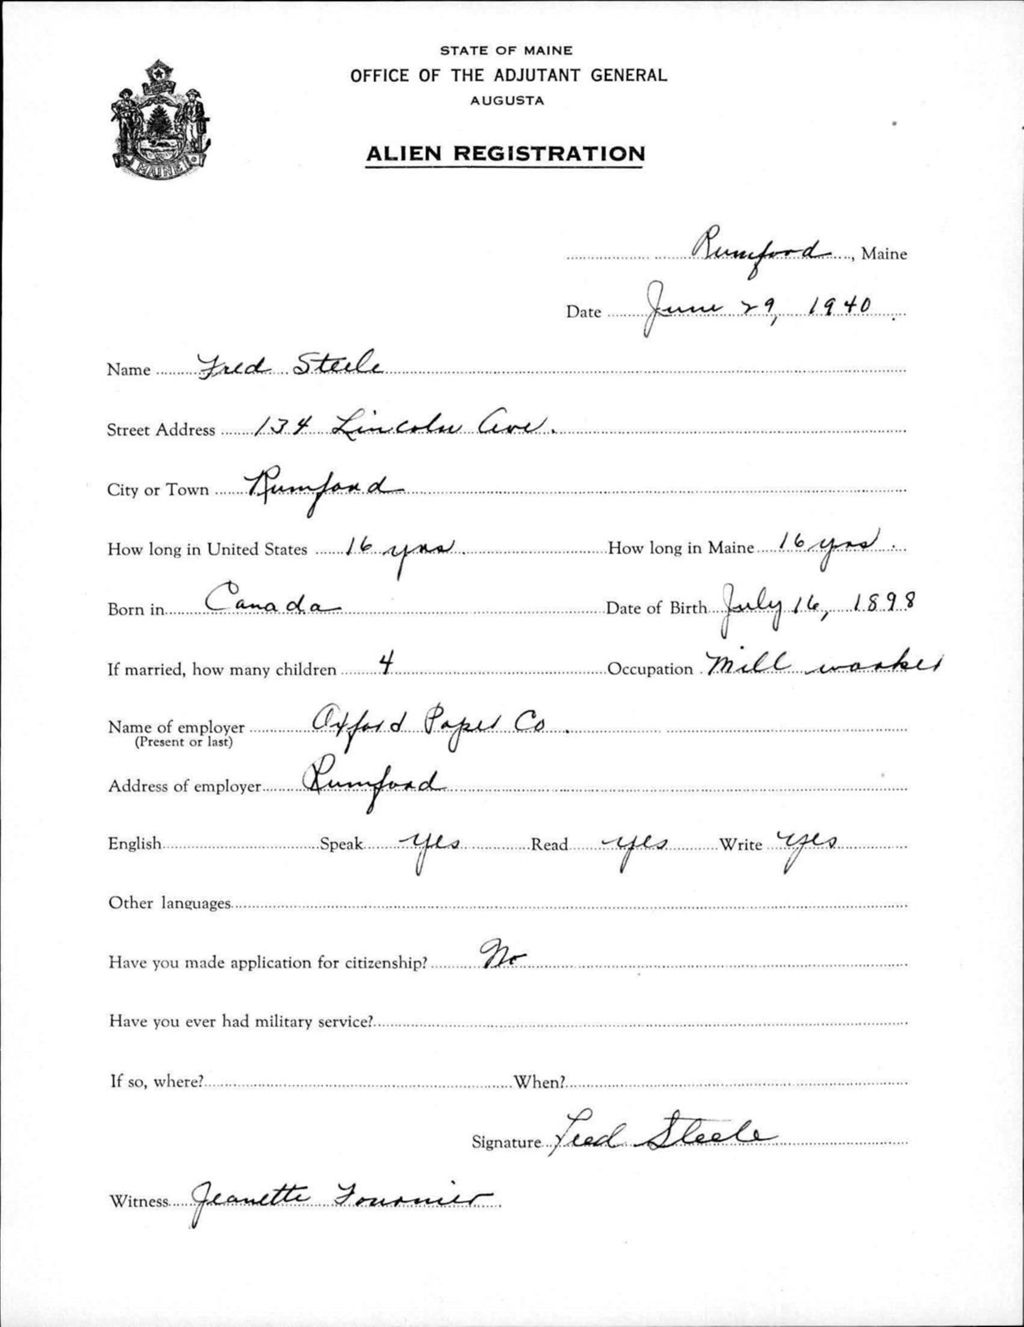 STATE OF MAINE
OFFICE OF THE ADJUTANT GENERAL
AUGUSTA
ALIEN REGISTRATION
MAINE
Rumford, Maine
Date June 29, 1940.
Name Fred Steele
Street Address 134 Lincoln Ave.
City or Town Rumford
How long in United States 16 yrs. How long in Maine 16 yrs.
Born in Canada Date of Birth July 16, 1898
If married, how many children 4 Occupation Mill worker
Name of employer Oxford Paper Co.
(Present or last)
Address of employer Rumford
English Speak yes Read yes Write yes
Other languages
Have you made application for citizenship? No
Have you ever had military service?
If so, where? When?
Signature Fred Steele
Witness Jeanette Fournier